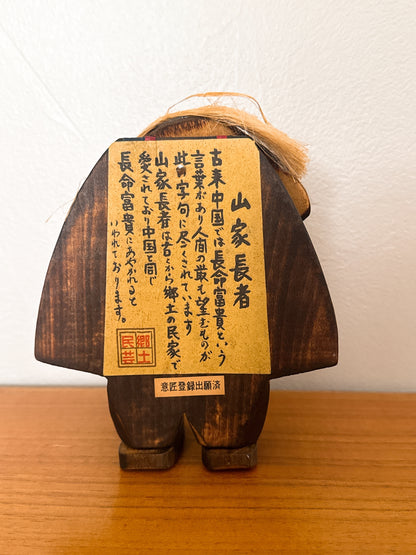 山家長者
古来中国では長命富貴という
言葉があり人間の最も望むものが
此の四字句に尽くされています
山家長者は古くから郷土の民家で
愛されており中国と同じ
長命富貴にあやかれると
いわれております。
郷土
民芸
意匠登録出願済